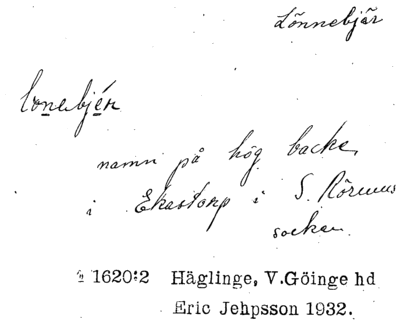 Lönnebjär
lonebjér
namn på hög backe,
i Ekastorp i S. Rörums
socken.
1620:2 Häglinge, V.Göinge hd
Eric Jehpsson 1932.